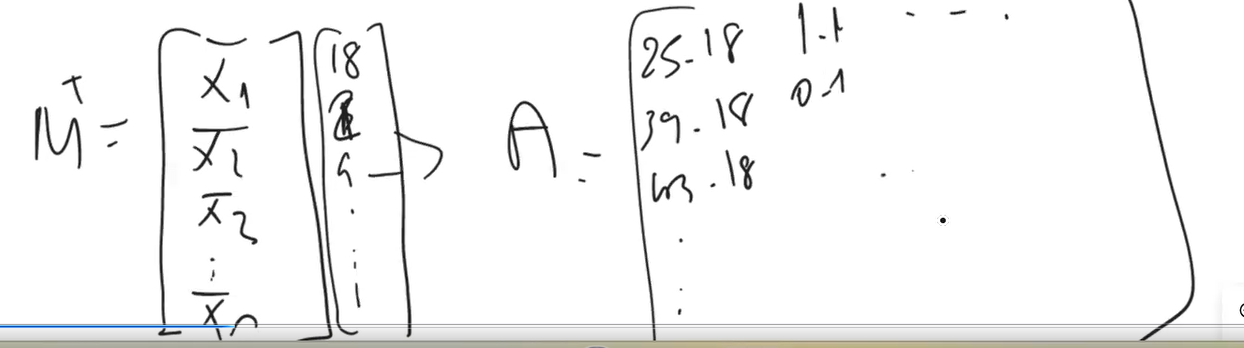 M^T = [x̄1 x̄2 x̄3 ⋮ x̄n] [18 1 4 ⋮]
A = [25-18 1-1 ...
39-18 0-1
-18